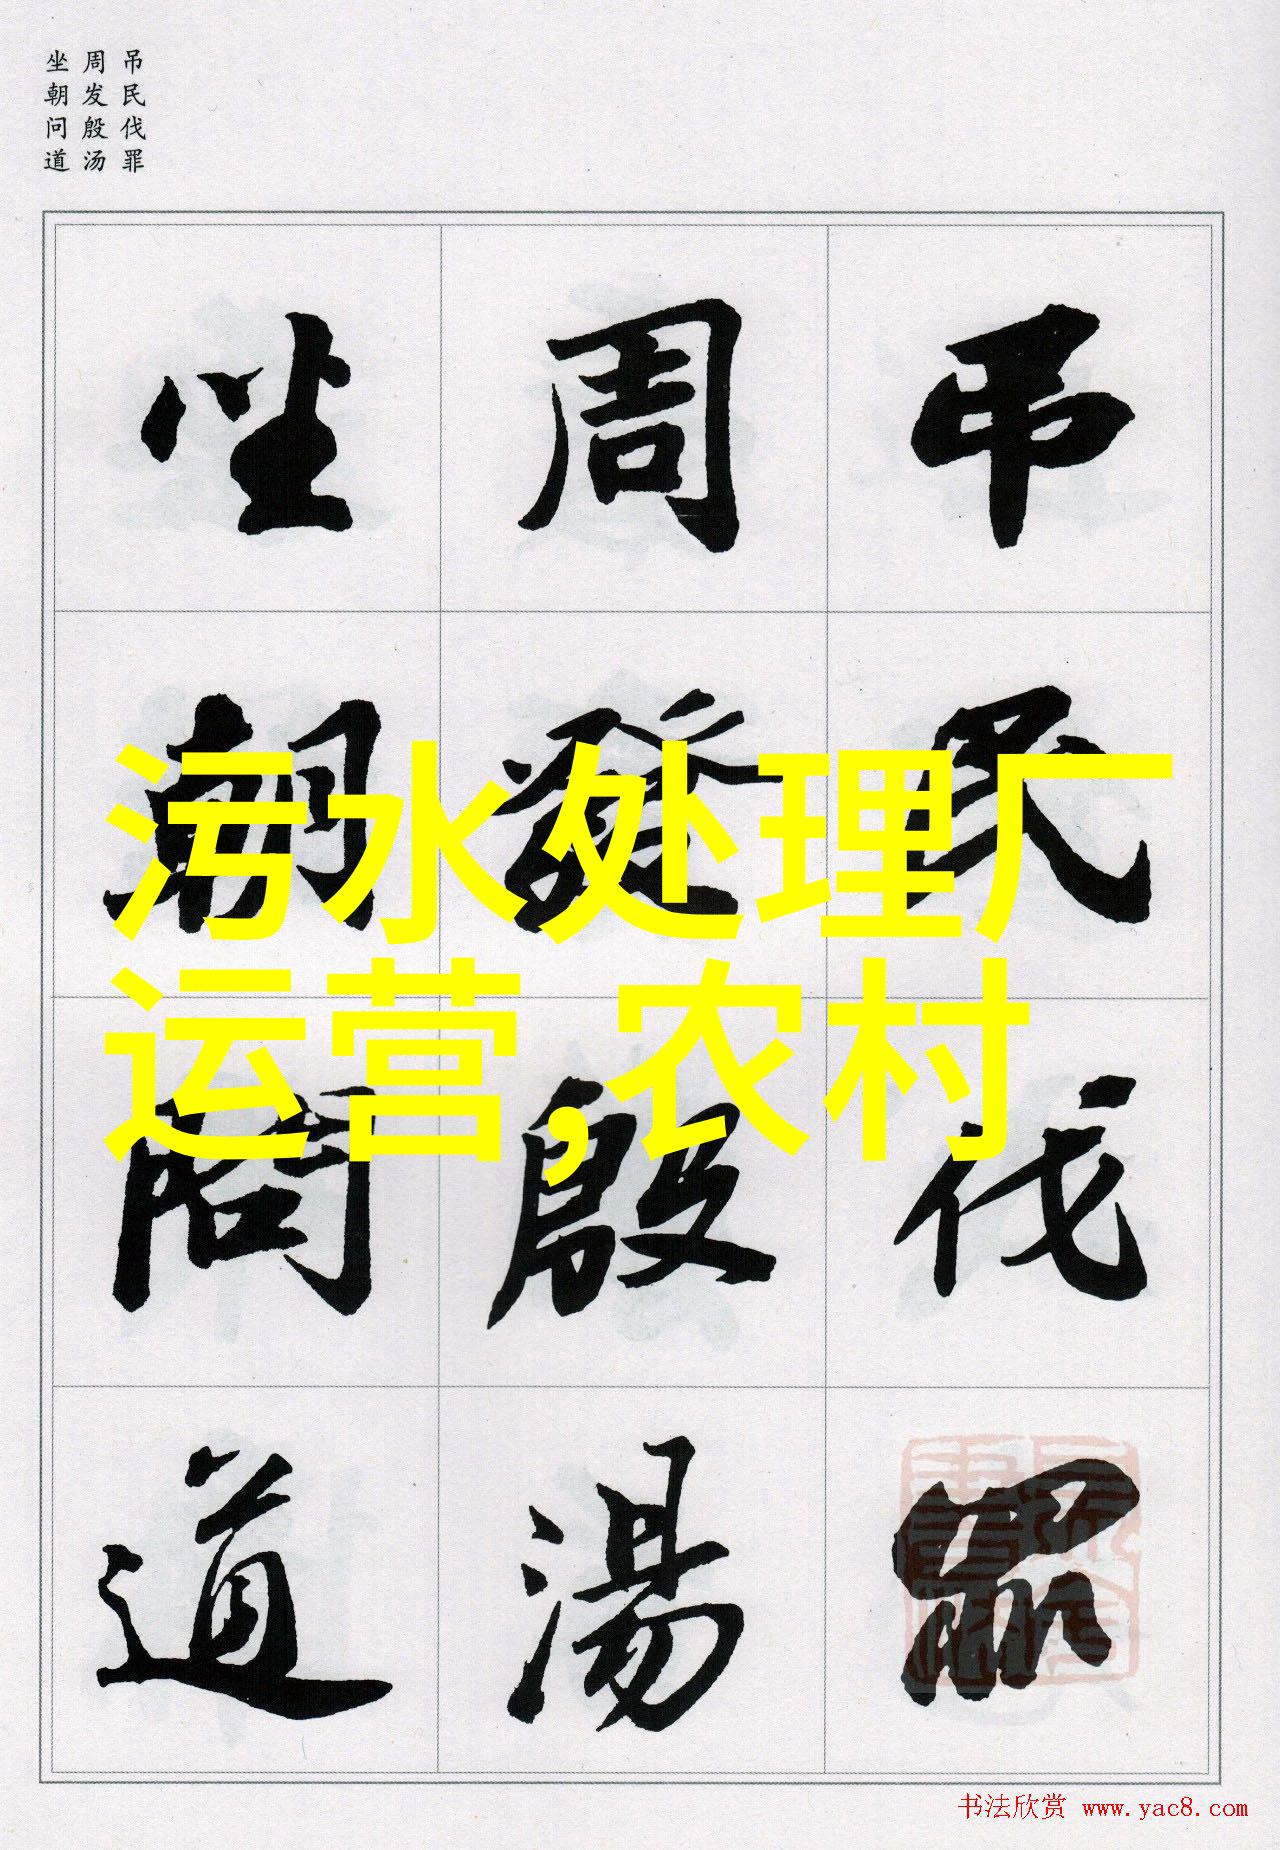 吊民伐罪
周发殷汤
坐朝问道
吊民伐罪
周發殷湯
坐朝問道
污水处理厂
运营,农村
书法欣赏 www.yac8.com